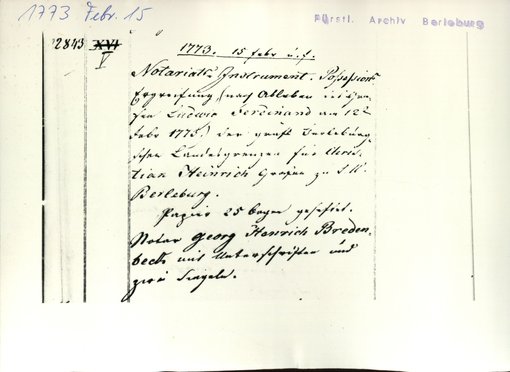 1773 Febr. 15
Fürstl. Archiv Berleburg
2843 XVI
V
1773. 15 febr u.f.
Notariats-Instrument. Possession-
Ergreifung (nach Ableben des Gra-
fen Ludwig Ferdinand am 12t
Febr 1773) der gräfl Berleburg
schen Landesgrenzen für Chris-
tian Heinrich Grafen zu S.W.
Berleburg.
Papier 25 bogen geheftet.
Notar Georg Henrich Breden-
beck mit Unterschriften und
zwei Siegeln.